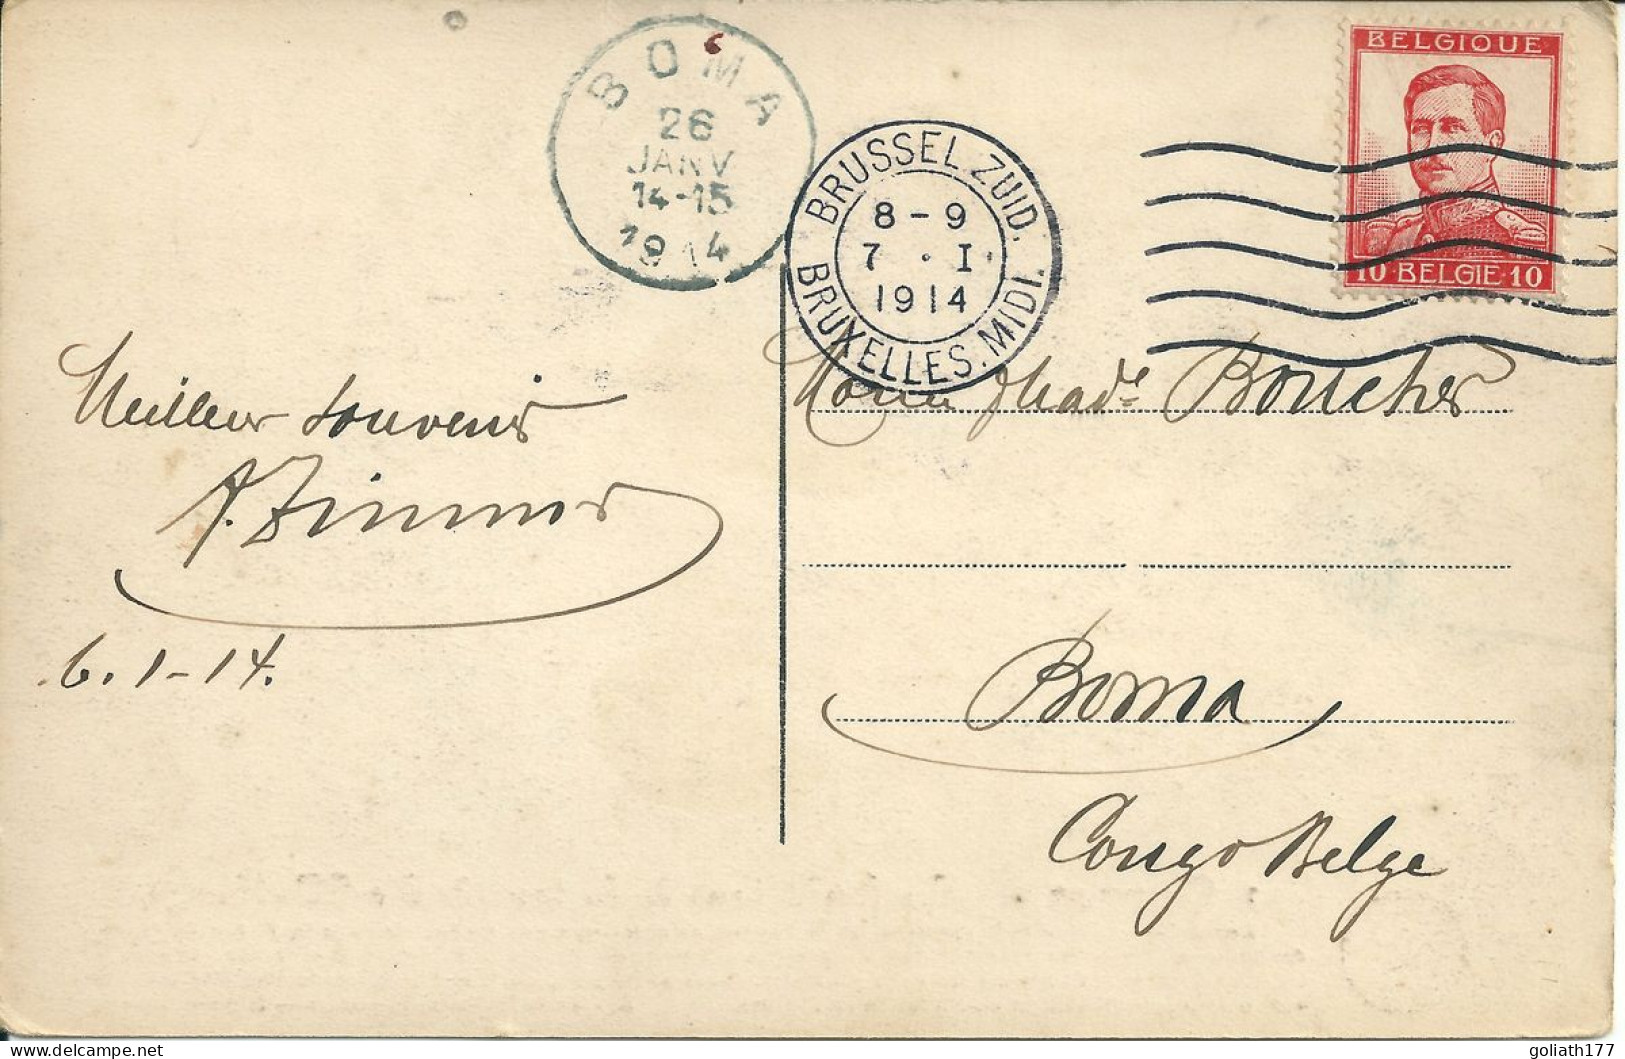 BOMA
26
JANV
14-15
1914
BRUSSEL ZUID.
8-9
7 . I
1914
BRUXELLES. MIDI.
BELGIQUE
10 BELGIE 10
Meilleur souvenir
6.1-14.
Boucher
Boma
Congo Belge
goliath177